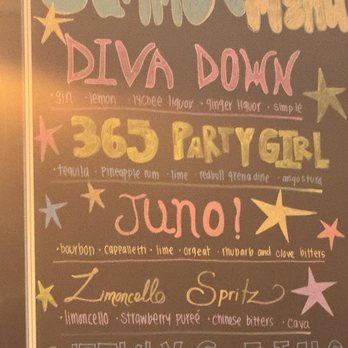 Menu
DIVA DOWN
· gin · lemon · lychee liquor · ginger liquor · simple
365 PARTY GIRL
· tequila · pineapple rum · lime · redbull grenadine · angostura
JUNO!
· bourbon · cappalletti · lime · orgeat · rhubarb and clove bitters
Limoncello Spritz
· limoncello · strawberry pureé · chinese bitters · cava